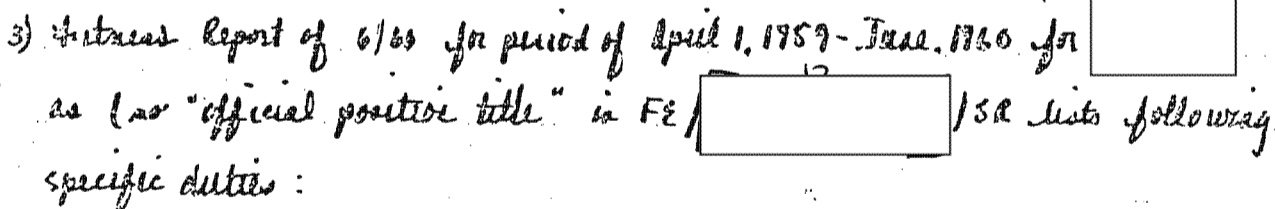 3) Fitness Report of 6/60 for period of April 1, 1959 - June, 1960 for
as (no "official position title" in FE/ /SR lists following
specific duties :